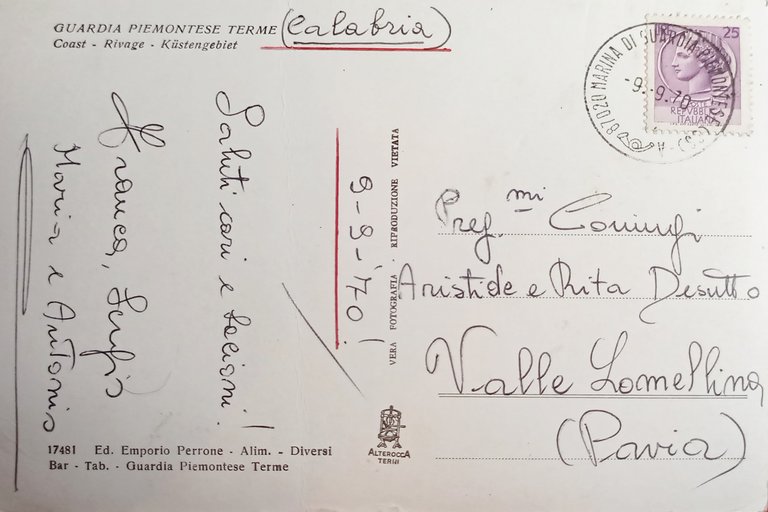 GUARDIA PIEMONTESE TERME (Calabria)
Coast - Rivage - Küstengebiet
Saluti cari e bacioni!
Franca, Serafino
Maria e Antonio
9-9-'70!
VERA FOTOGRAFIA - RIPRODUZIONE VIETATA
25
REPVBBLICA
ITALIANA
MARINA DI GUARDIA PIEMONTESE
-9.-9.70
(CS)
Preg.mi Coniugi
Aristide e Rita Desutto
Valle Lomellina
(Pavia)
ALTEROCCA
TERNI
17481 Ed. Emporio Perrone - Alim. - Diversi
Bar - Tab. - Guardia Piemontese Terme